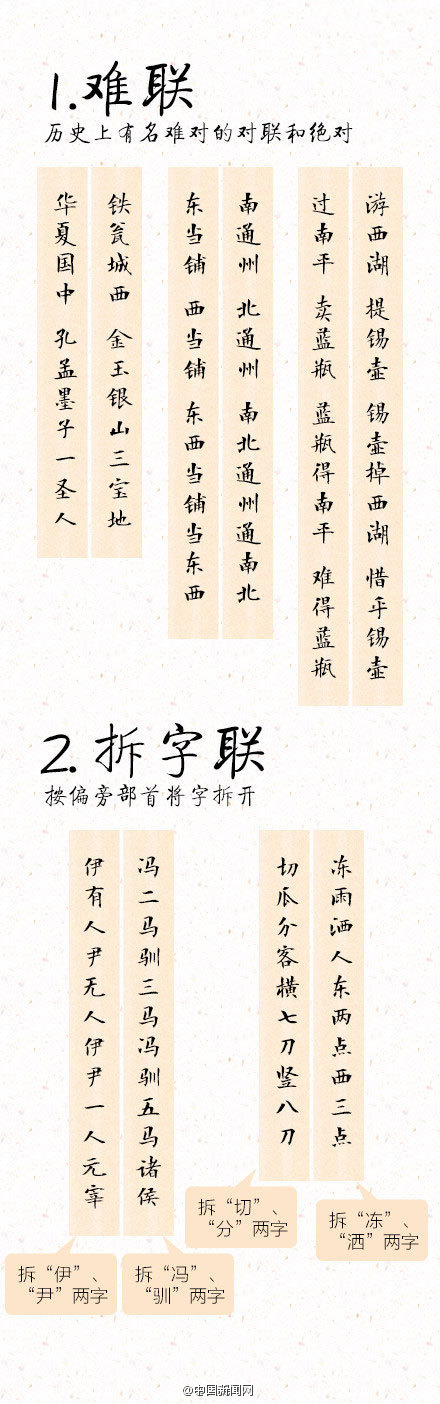 1.难联
历史上有名难对的对联和绝对
游西湖 提锡壶 锡壶掉西湖 惜乎锡壶
过南平 卖蓝瓶 蓝瓶得南平 难得蓝瓶
南通州 北通州 南北通州通南北
东当铺 西当铺 东西当铺当东西
铁瓮城西 金玉银山三宝地
华夏国中 孔孟墨子一圣人
2.拆字联
按偏旁部首将字拆开
冻雨洒人东两点西三点
切瓜分客横七刀竖八刀
冯二马驯三马冯驯五马诸侯
伊有人尹无人伊尹一人元宰
拆“冻”、
“洒”两字
拆“切”、
“分”两字
拆“冯”、
“驯”两字
拆“伊”、
“尹”两字
@中国新闻网